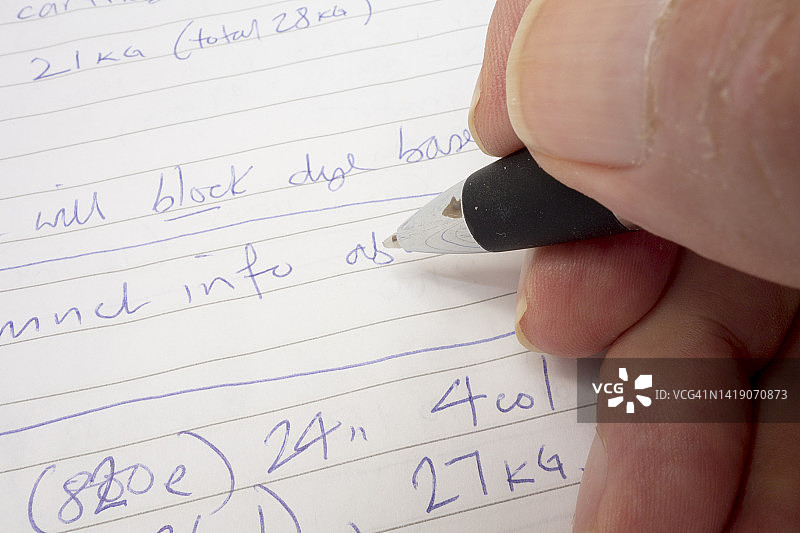 21KG (total 28KG)
will block dye base
info ab
(820e) 24" 4col
27KG.
VCG
VCG ID: VCG41N1219070873